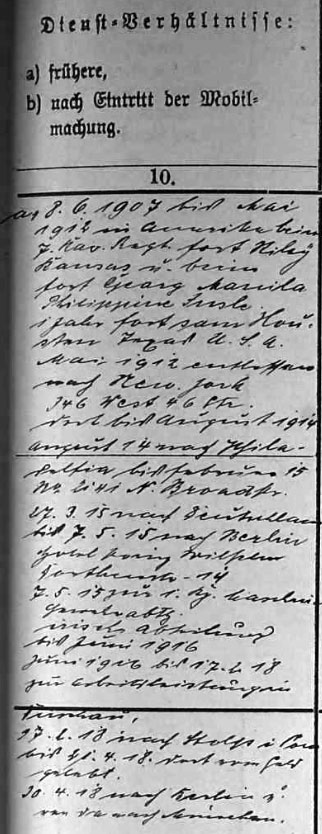 Dienst-Verhältnisse:
a) frühere,
b) nach Eintritt der Mobil-
machung.
10.
a, 8. 6. 1907 bis Mai
1912 in Amerika beim
7. Kav. Regt. fort Riley
Kansas u. beim
fort Georg Manila
Philippine Insle
1 Jahr fort sam Hou-
sten Texas U. S. A.
Mai 1912 entlassen
nach New. York
346 West 46 Str.
dort bis August 1914
August 14 nach Phila-
delfia bis Februar 15
No 2141 N. Broadstr.
27. 3. 15 nach Deutschlan
bis 7. 5. 15 nach Berlin
Hotel König Wilhelm
14
7. 5. 15 zur 1.
irische Abteilung
bis Juni 1916
Juni 1916 bis 17. 2. 18
zur Arbeitsleistung in
17. 2. 18 nach Stolp i Pom
bis 4. 18. dort vom Geld
gelebt.
30. 4. 18 nach Berlin u.
von da nach München.